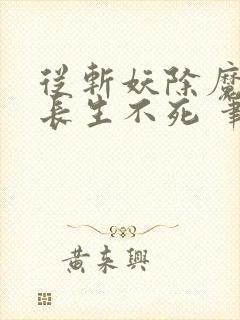 從斬妖除魔
長生不死
黄来興